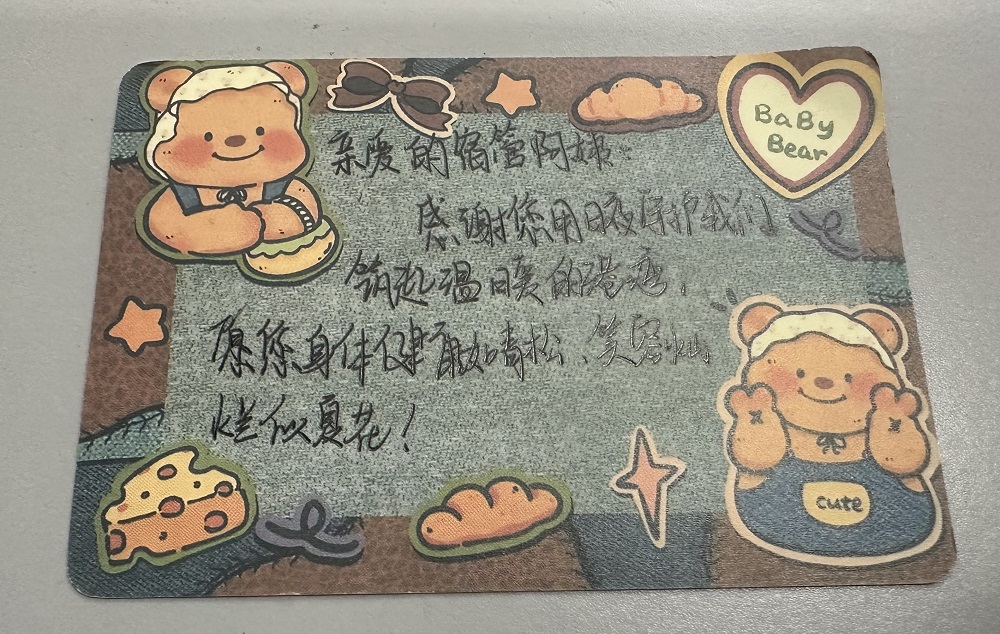 亲爱的宿管阿姨：
感谢您用日夜保护我们
筑起温暖的港湾，
愿您身体健康如青松、笑容灿
烂似夏花！
BaBy
Bear
cute